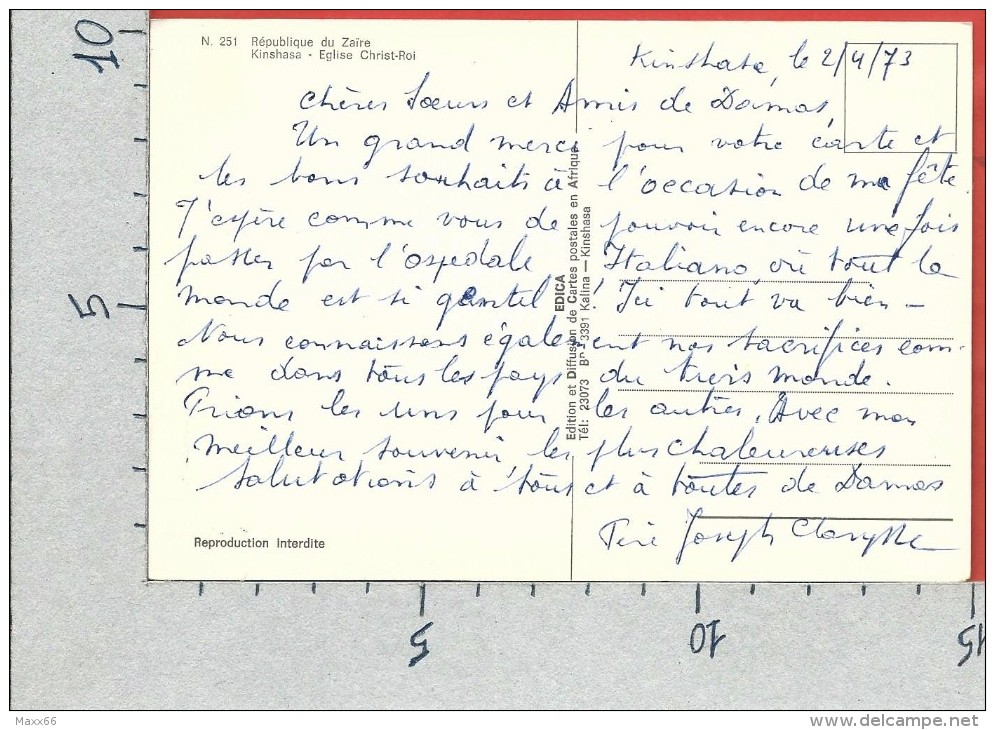 N. 251 République du Zaïre
Kinshasa - Eglise Christ-Roi
Kinshasa, le 2/4/73
Chères Soeurs et Amis de Damas,
Un grand merci pour votre carte et
les bons souhaits à l'occasion de ma fête.
J'espère comme vous de pouvoir encore une fois
passer par l'ospedale Italiano, où tout le
monde est si gentil ! Ici tout va bien -
Nous connaissons également nos sacrifices com-
me dans tous les pays du tiers monde.
Prions les uns pour les autres. Avec mon
meilleur souvenir, les plus chaleureuses
salutations à tous et à toutes de Damas
Père Joseph
Reproduction interdite
EDICA
Edition et Diffusion de Cartes postales en Afrique
Tél: 23073 BP 3391 Kalina — Kinshasa
10
5
5
10
15
Maxx66
www.delcampe.net